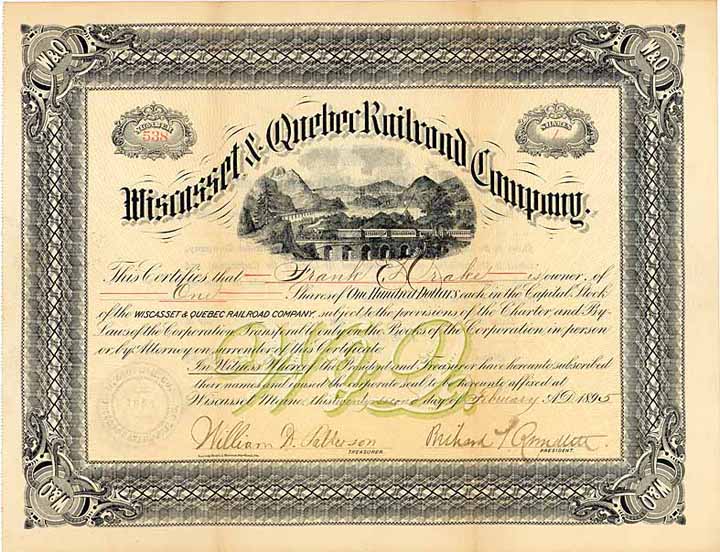 W&Q
W&Q
NUMBER
538
SHARES
1
Wiscasset & Quebec Railroad Company.
This Certifies that Frank Drake is owner of
One Shares of One Hundred Dollars each in the Capital Stock
of the WISCASSET & QUEBEC RAILROAD COMPANY, subject to the provisions of the Charter and By-
Laws of the Corporation. Transferable only on the Books of the Corporation in person
or by Attorney on surrender of this Certificate.
In Witness Whereof the President and Treasurer have hereunto subscribed
their names and caused the corporate seal to be hereunto affixed at
Wiscasset Maine, this twenty second day of February A.D. 1895
William D. Patterson
TREASURER.
Richard T Rundlett
PRESIDENT.
W&Q
W&Q